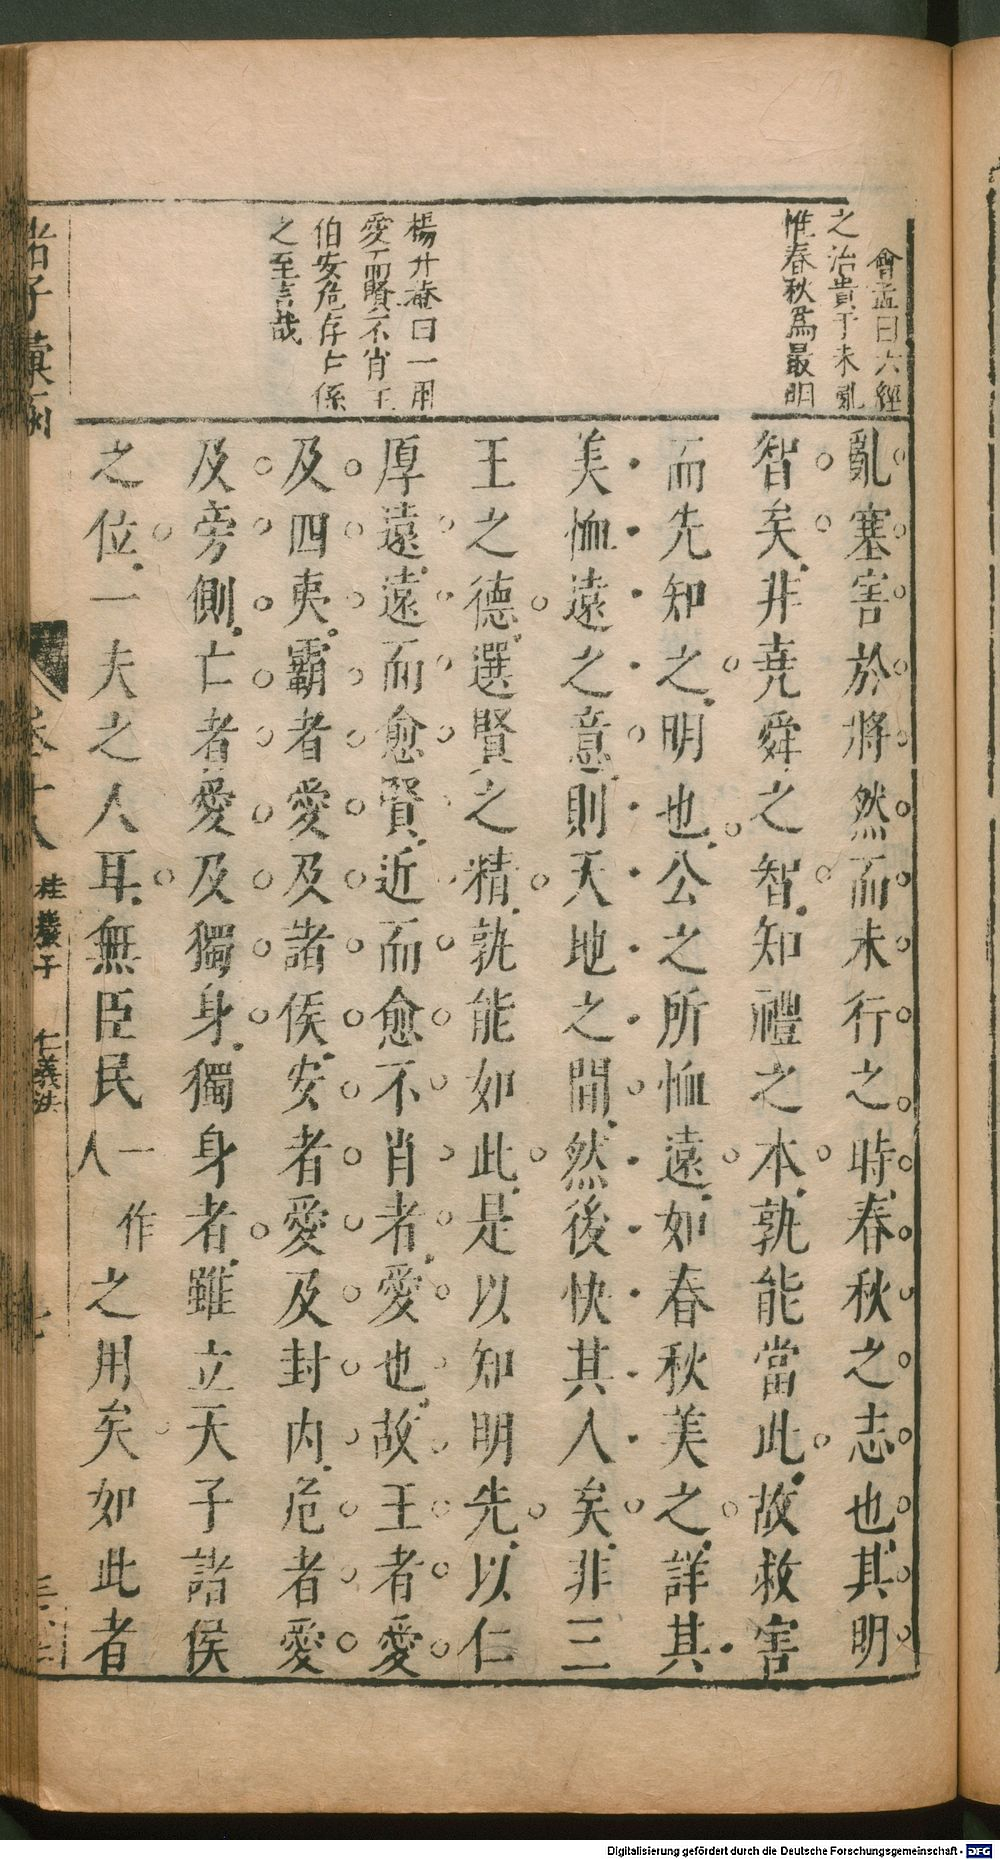 會孟曰六經
之治貴于未亂
惟春秋爲最明
楊升菴曰一用
愛而賢不肖王
伯安危存亡係
之至言哉
亂塞害於將然而未行之時春秋之志也其明
智矣非堯舜之智知禮之本孰能當此故救害
而先知之明也公之所恤遠如春秋美之詳其
美恤遠之意則天地之間然後快其人矣非三
王之德選賢之精孰能如此是以知明先以仁
厚遠遠而愈賢近而愈不肖者愛也故王者愛
及四夷霸者愛及諸侯安者愛及封内危者愛
及旁側亡者愛及獨身獨身者雖立天子諸侯
之位一夫之人耳無臣民一人作之用矣如此者
卷十八
桂巖子
仁義法
Digitalisierung gefördert durch die Deutsche Forschungsgemeinschaft - DFG